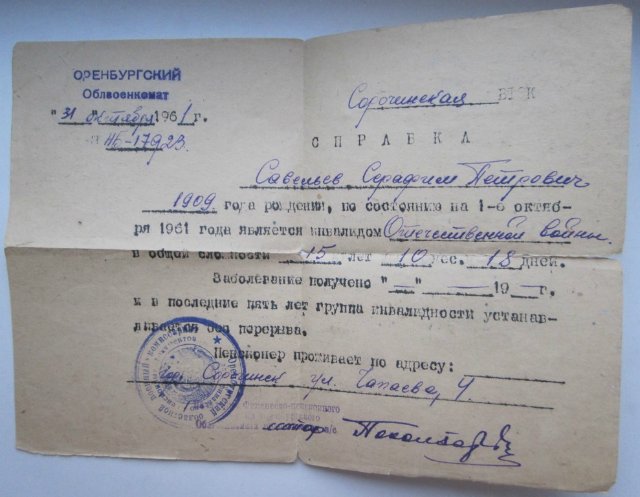 ОРЕНБУРГСКИЙ
Облвоенкомат
"31" октября 1961 г.
№ -17923
Сорочинская ВТЭК
СПРАВКА
Савельев Серафим Петрович
1909 года рождения, по состоянию на 1-е октяб-
ря 1961 года является инвалидом Отечественной войны
в общей сложности 15 лет 10 мес. 18 дней.
Заболевание получено "—" — 19 — г.
и в последние пять лет группа инвалидности устанав-
ливается без перерыва.
Пенсионер проживает по адресу:
гор. Сорочинск ул. Чапаева, 4.
Финансово-пенсионного